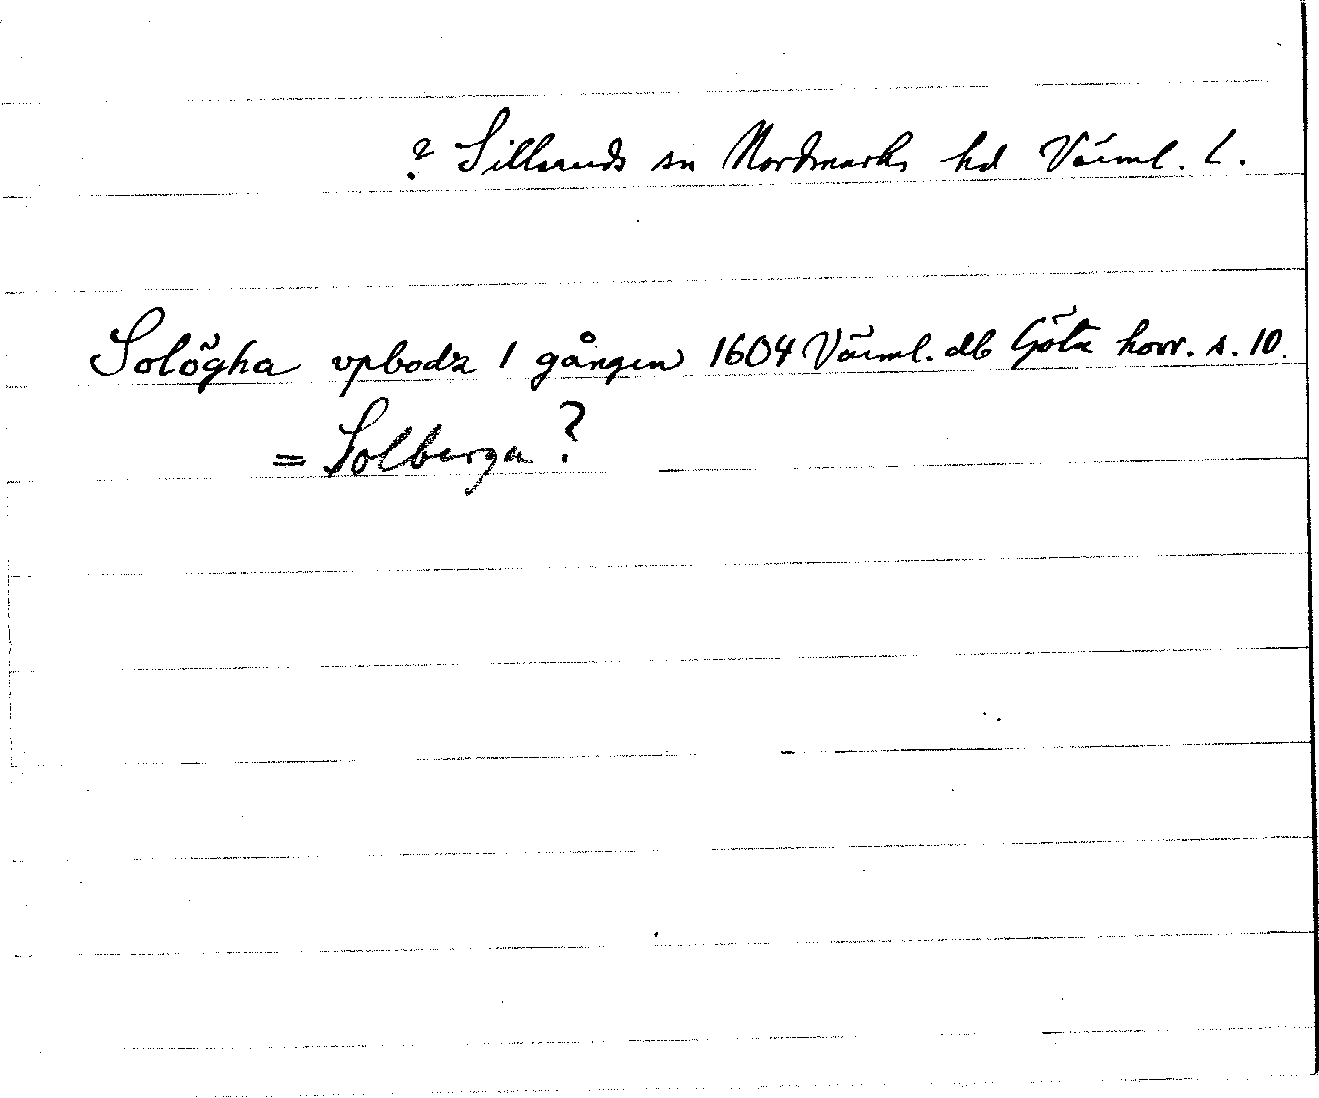 ? Silleruds sn Nordmarks hd Värml. L.
Solögha vpbodz 1 gången 1604 Värml. db Göta hovr. s. 10.
= Solberga ?